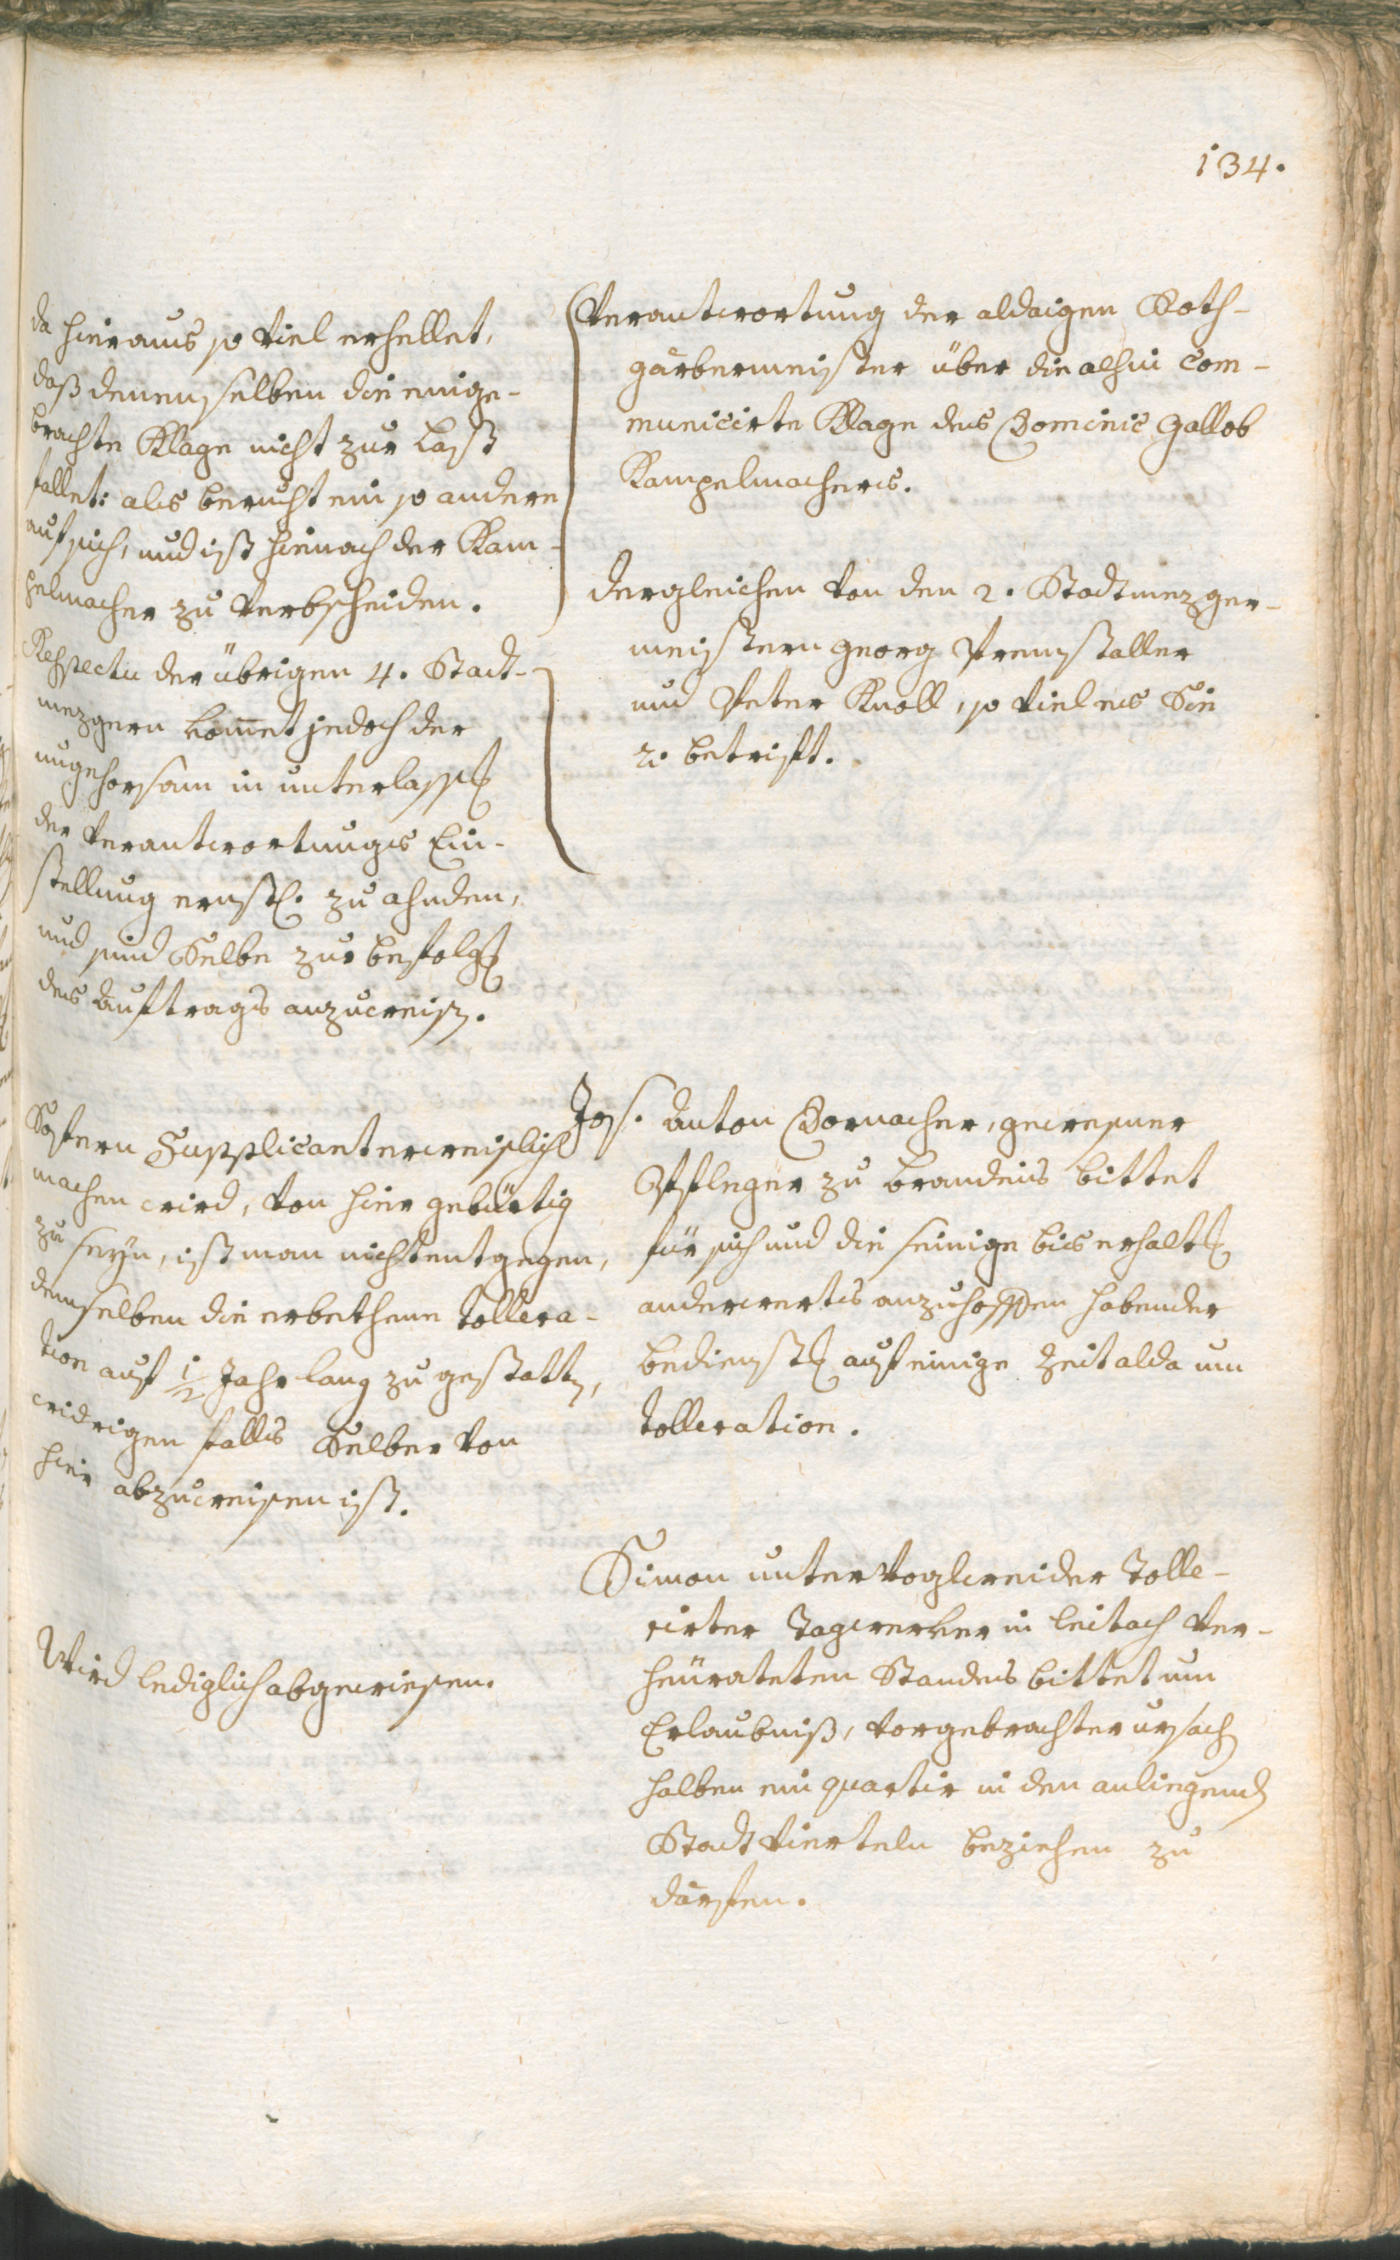 134.
da hieraus so viel erhellet,
daß denenselben die einge-
brachte Klage nicht zur Last
fallet: als beruht ein so andere
auf sich, und ist hienach der Kam-
pelmacher zu verbscheiden.
Respectu der übrigen 4. Stadt-
mezgern kom̅et jedoch der
ungehorsam in unterlassg
der Verantwortungs Ein-
stellung ernstl. zu ahnden,
und sind Selbe zur befolgg
des Auftrags anzuweisen.
Verantwortung der aldaigen Roth-
gärbermeister über die alhin com-
municirte Klage des Dominic Gallob
Kampelmachers.
dergleichen von den 2. Stadtmezger-
meistern Georg Premstaller
und Peter Knoll, so viel es Sie
2. betrift.
Sofern Supplicant erweislich
machen wird, von hier gebürtig
zu seyn, ist man nicht entgegen,
demselben die erbethene Tollera-
tion auf 1/2 Jahr lang zu gestatten,
widrigen falls Selber von
hier abzuweisen ist.
Jos. Anton Dornacher, gewesener
Pfleger zu Brandeis bittet
für sich und die seinige bis erhaltg
anderwerts anzuhoffen habender
bedienstg auf einige Zeit alda um
Tolleration.
Wird lediglich abgewiesen.
Simon untervoglweider Tolle-
rirter Tagwerker in Leitach ver-
heürateten Standes bittet um
Erlaubniß, vorgebrachter ursach
halben ein quartir in den anliegend
Stadt Vierteln beziehen zu
därfen.